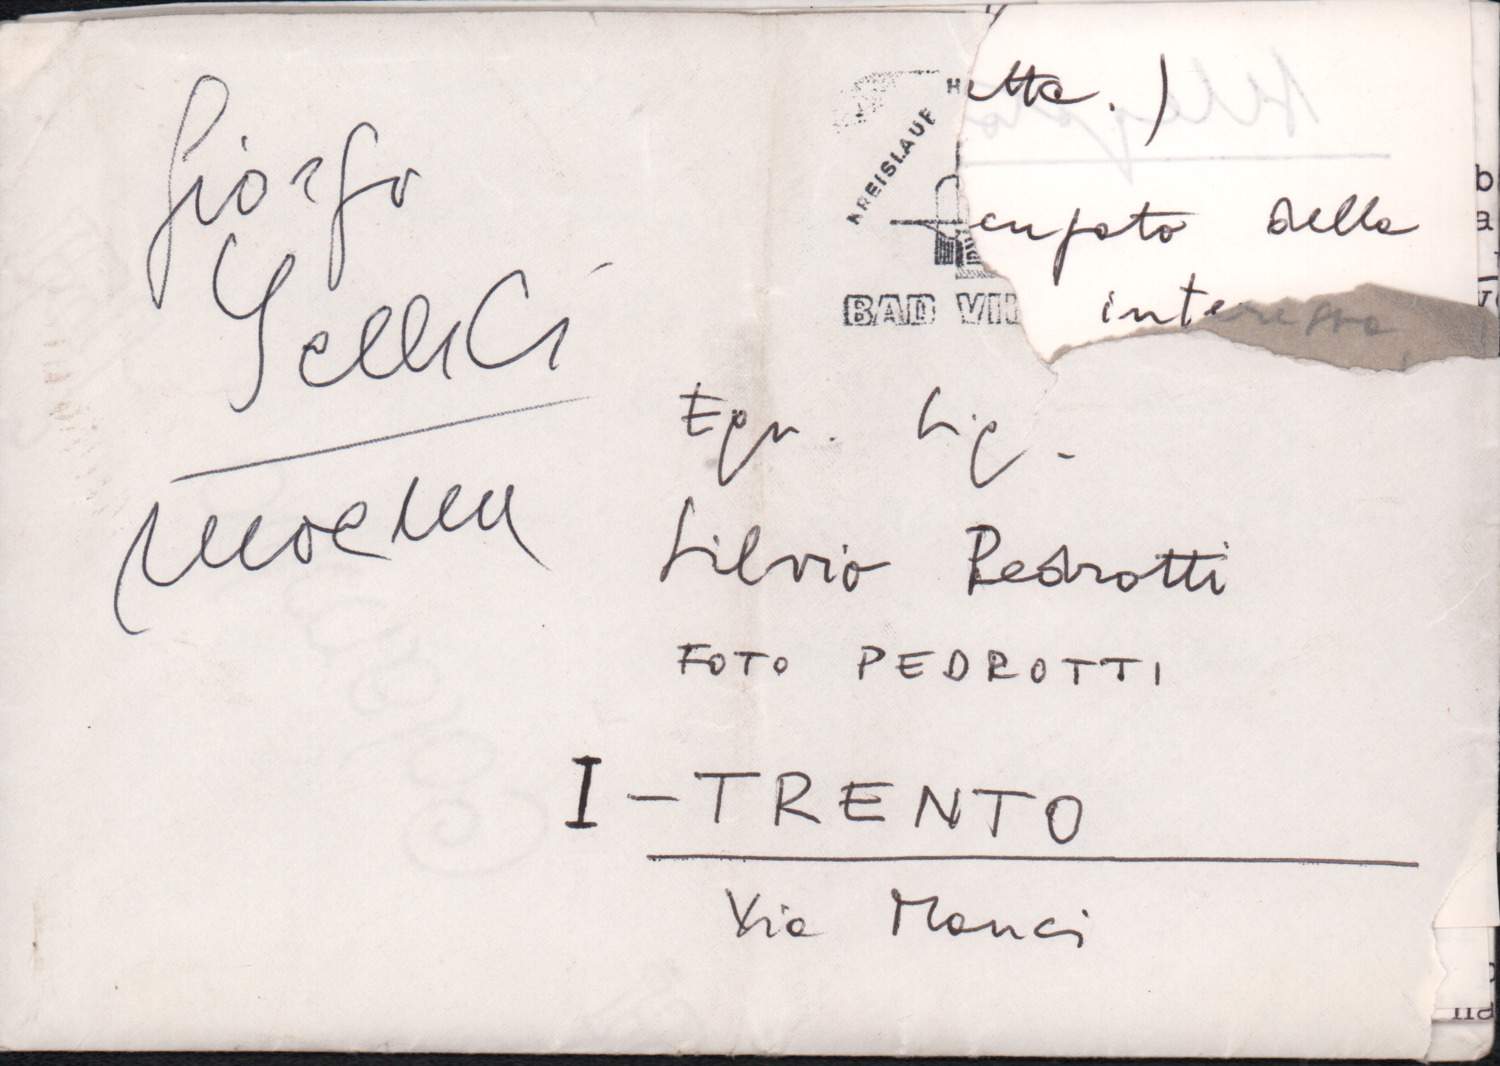 Giorgo
Jellici
moena
H
KREISLAUF
BAD VIL
etta.)
cupato della
interesse,
Egr. Sig.
Silvio Pedrotti
FOTO PEDROTTI
I - TRENTO
Via Manci